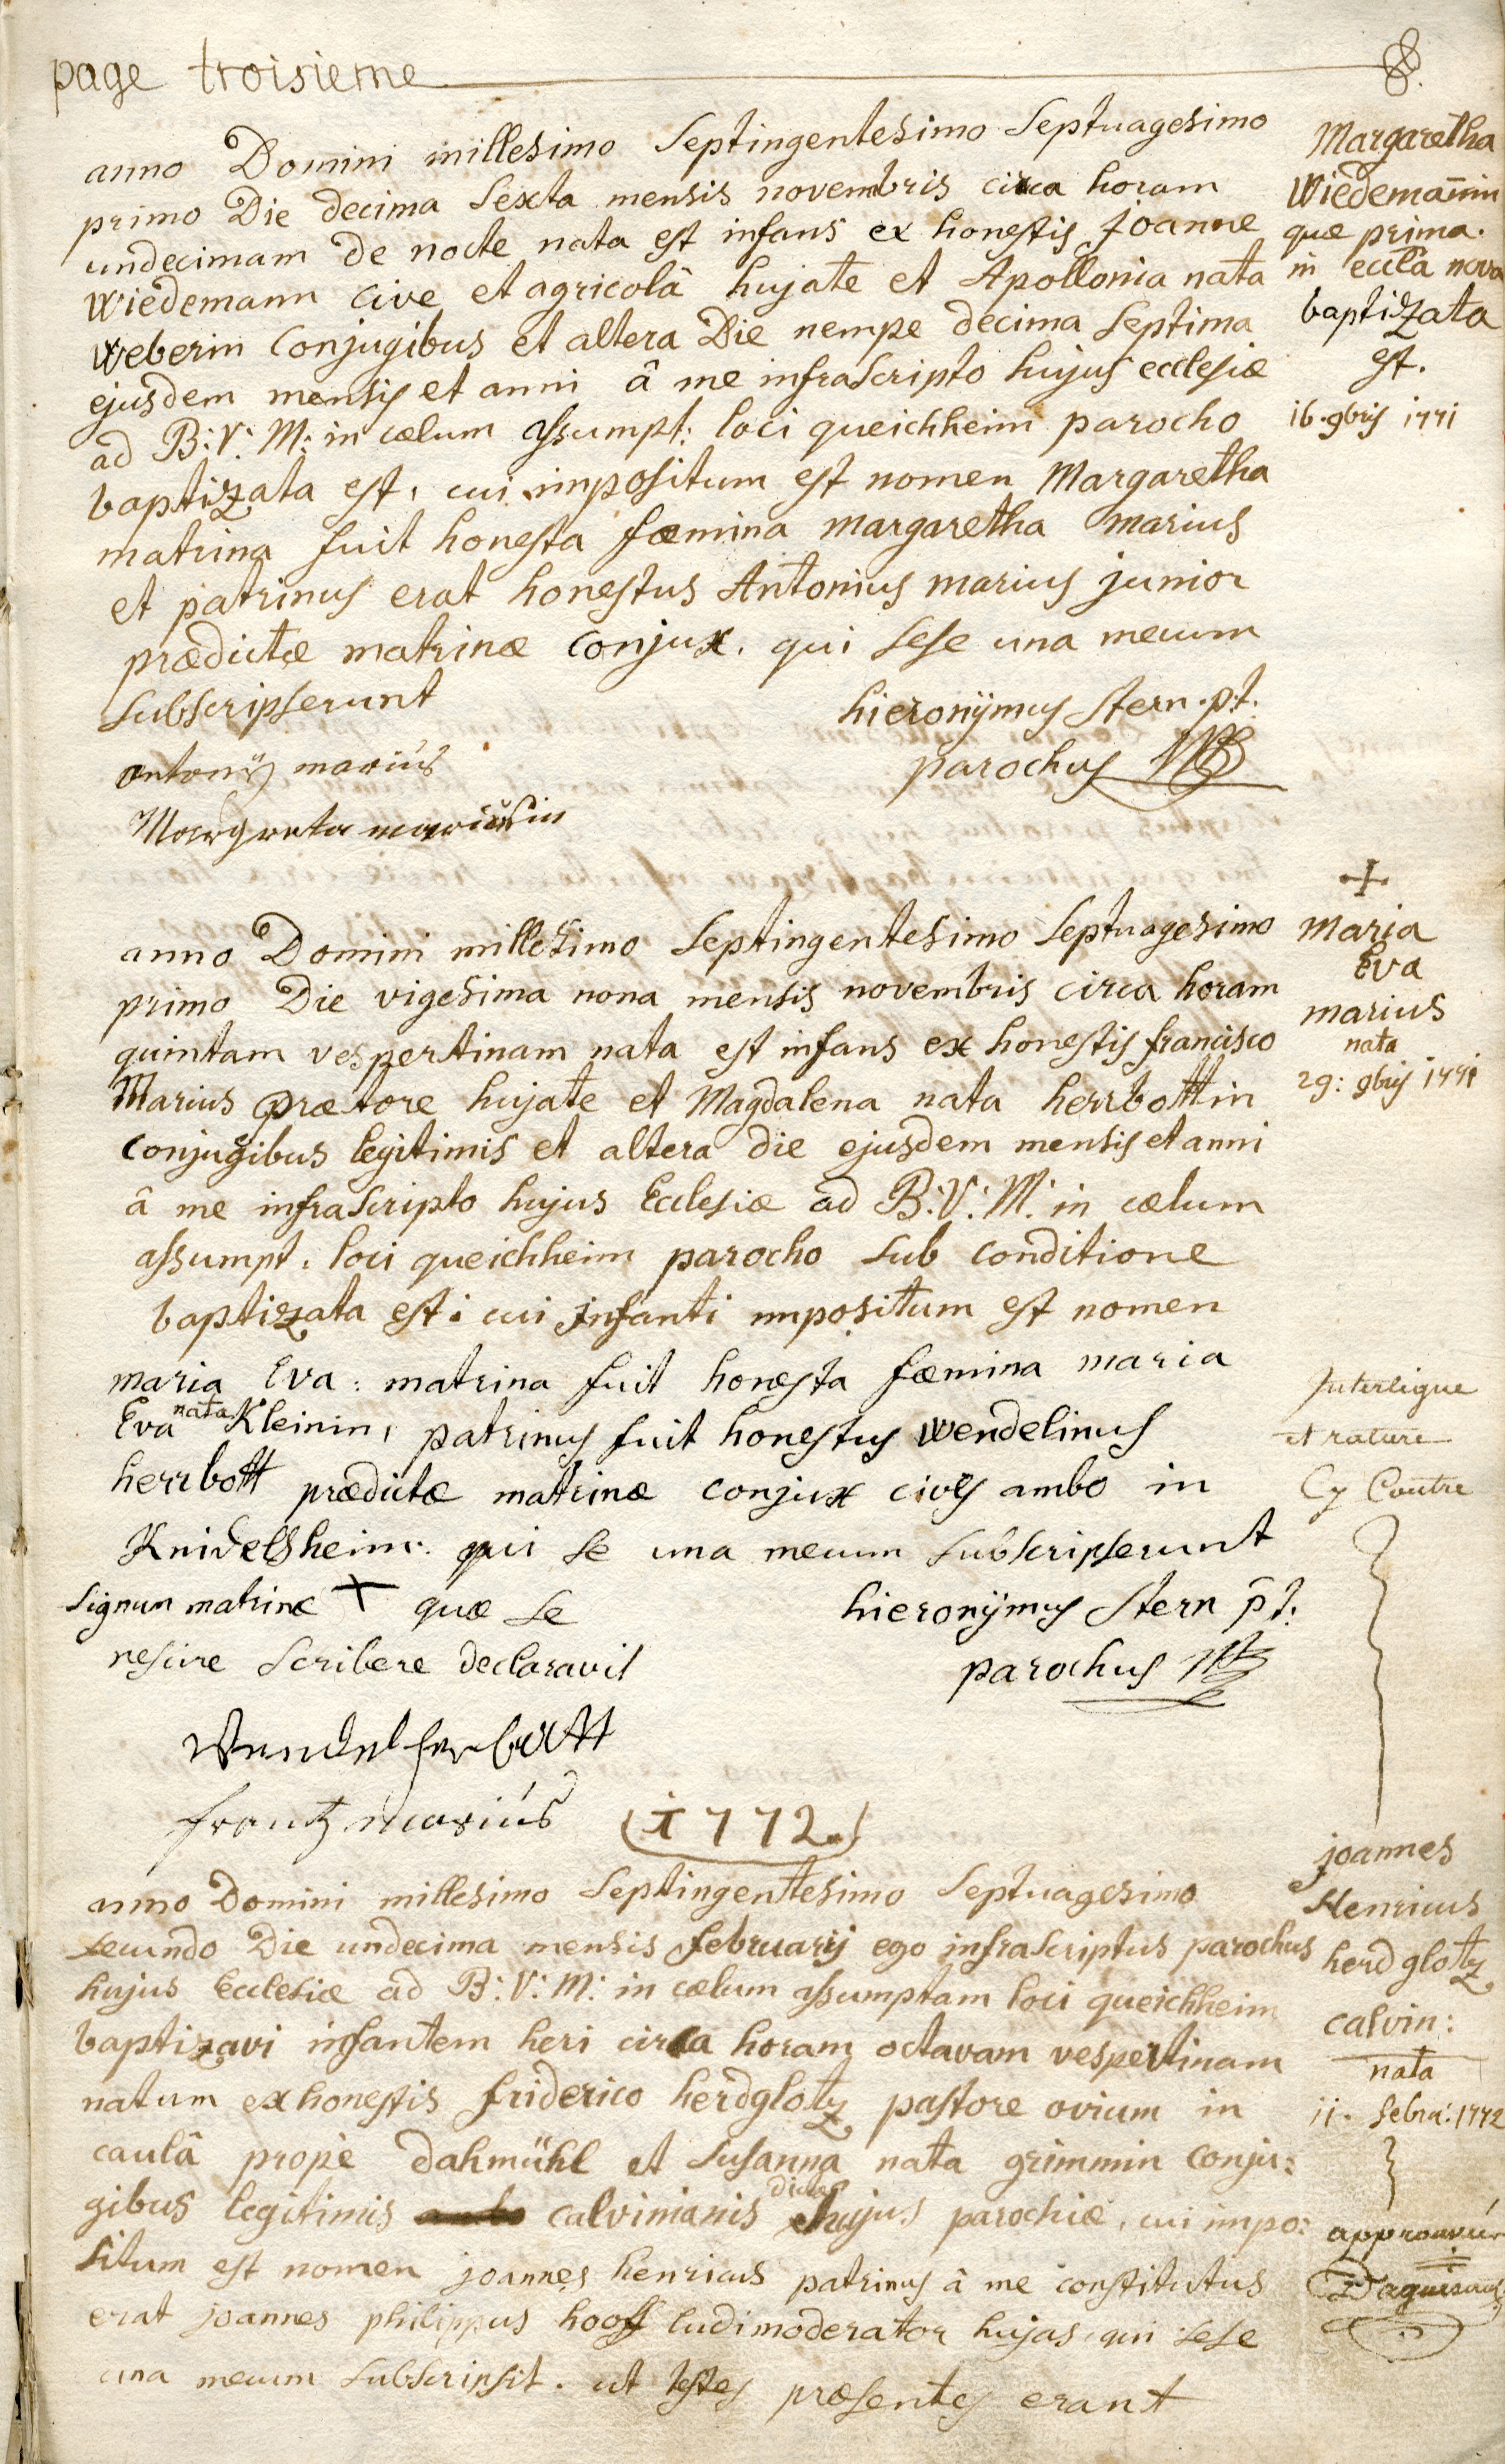 page troisieme
8.
anno Domini millesimo Septingentesimo Septuagesimo
primo Die decima Sexta mensis novembris circa horam
undecimam de nocte nata est infans ex honestis joanne
Wiedemann cive et agricolâ hujate et Apollonia nata
Weberin Conjugibus et altera Die nempe decima Septima
ejusdem mensis et anni â me infraScripto hujus ecclesiæ
ad B: V: M: in cælum assumpt: loci queichheim parocho
baptizata est, cui impositum est nomen Margaretha
matrina fuit honesta fæmina margaretha marius
et patrinus erat honestus Antonius marius junior
prædictæ matrinæ Conjux, qui Sese una mecum
Subscripserunt
hieronÿmus Stern p.t.
parochus
antoniÿ marius
Margreta mariusin
Margaretha
Wiedemañin
quæ prima
in eccla nova
baptizata
est.
16. 9bris 1771
anno Domini millesimo Septingentesimo Septuagesimo
primo Die vigesima nona mensis novembris circa horam
quintam vespertinam nata est infans ex honestis francisco
Marius prætore hujate et Magdalena nata herrbottin
Conjugibus legitimis et altera die ejusdem mensis et anni
â me infraScripto hujus Ecclesiæ ad B: V: M: in cælum
assumpt. loci queichheim parocho Sub conditione
baptizata est: cui jnfanti impositum est nomen
maria Eva: matrina fuit honesta fæmina maria
Eva nata Kleinin, patrinus fuit honestus Wendelinus
herrbott prædictæ matrinæ conjux cives ambo in
Knidelsheim. qui Se una mecum Subscripserunt
Signum matrinæ + quæ Se
nescire Scribere declaravit
hieronÿmus Stern p̄t.
parochus
Wendel herbott
frantz marius
+
Maria
Eva
marius
nata
29: 9bris 1771
Interligne
et rature
Cy Contre
1772
anno Domini millesimo Septingentesimo Septuagesimo
secundo Die undecima mensis februarij ego infraScriptus parochus
hujus Ecclesiæ ad B: V: M: in cælum assumptam loci queichheim
baptizavi infantem heri circa horam octavam vespertinam
natum ex honestis friderico herdglotz pastore ovium in
caulâ propè dahmühl et Susanna nata grimmin Conju:
gibus legitimis calvinianis dictæ hujus parochiæ, cui impo:
situm est nomen joannes henricus patrinus â me constitutus
erat joannes philippus hooff ludimoderator hujas, qui sese
una mecum Subscripsit. ut testes præsentes erant
joannes
Henricus
herdglotz
calvin:
nata
11. febru: 1772
approuvé